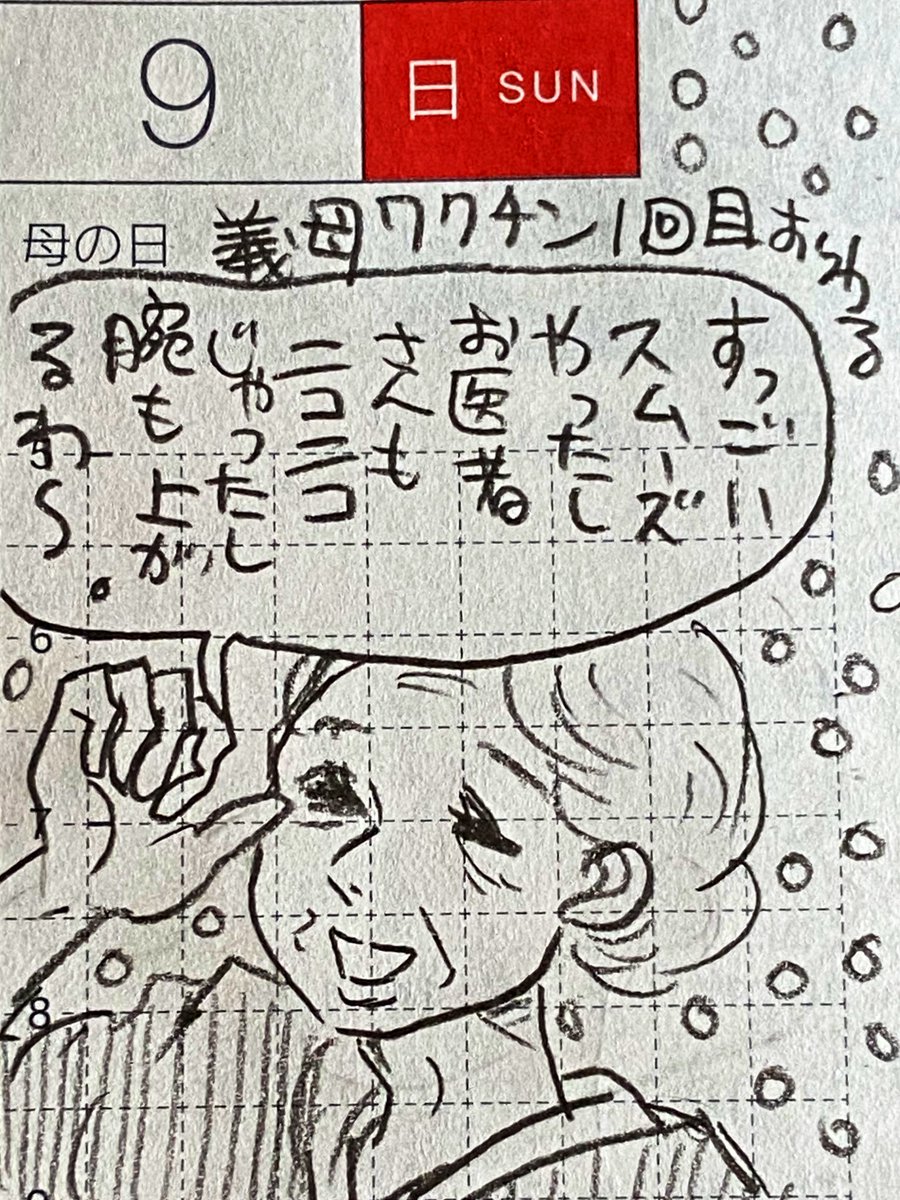 9
日 SUN
母の日
義母ワクチン1回目おわる
すっごい
スムーズ
やったし
お医者
さんも
ニコニコ
じゃったし
腕も上が
るわ〜。
5
6
7
8